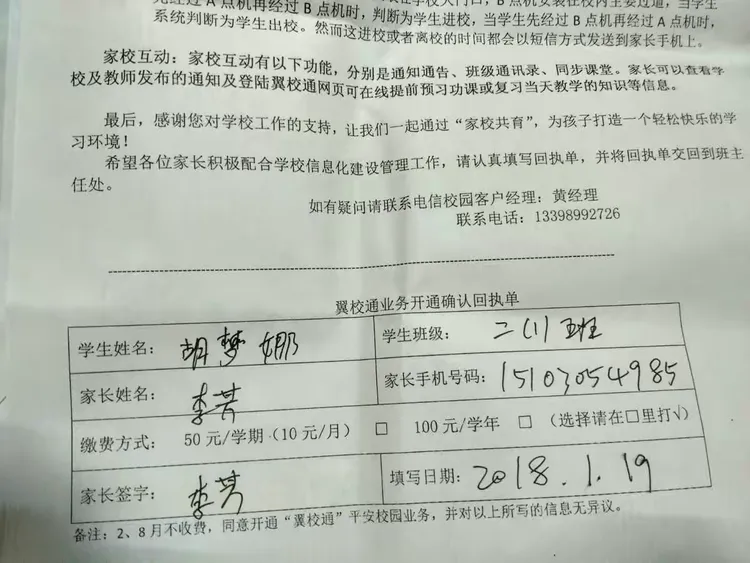 先经过A点机再经过B点机时，判断为学生进校，当学生先经过B点机再经过A点机时，
系统判断为学生出校。然而这进校或者离校的时间都会以短信方式发送到家长手机上。
家校互动：家校互动有以下功能，分别是通知通告、班级通讯录、同步课堂。家长可以查看学
校及教师发布的通知及登陆翼校通网页可在线提前预习功课或复习当天教学的知识等信息。
最后，感谢您对学校工作的支持，让我们一起通过“家校共育”，为孩子打造一个轻松快乐的学
习环境！
希望各位家长积极配合学校信息化建设管理工作，请认真填写回执单，并将回执单交回到班主
任处。
如有疑问请联系电信校园客户经理：黄经理
联系电话：13398992726
翼校通业务开通确认回执单
学生姓名： 胡梦娜 学生班级： 二(1)班
家长姓名： 李芳 家长手机号码： 15103054985
缴费方式： 50元/学期（10元/月） □ 100元/学年 □ （选择请在□里打√）
家长签字： 李芳 填写日期： 2018.1.19
备注：2、8月不收费，同意开通“翼校通”平安校园业务，并对以上所写的信息无异议。